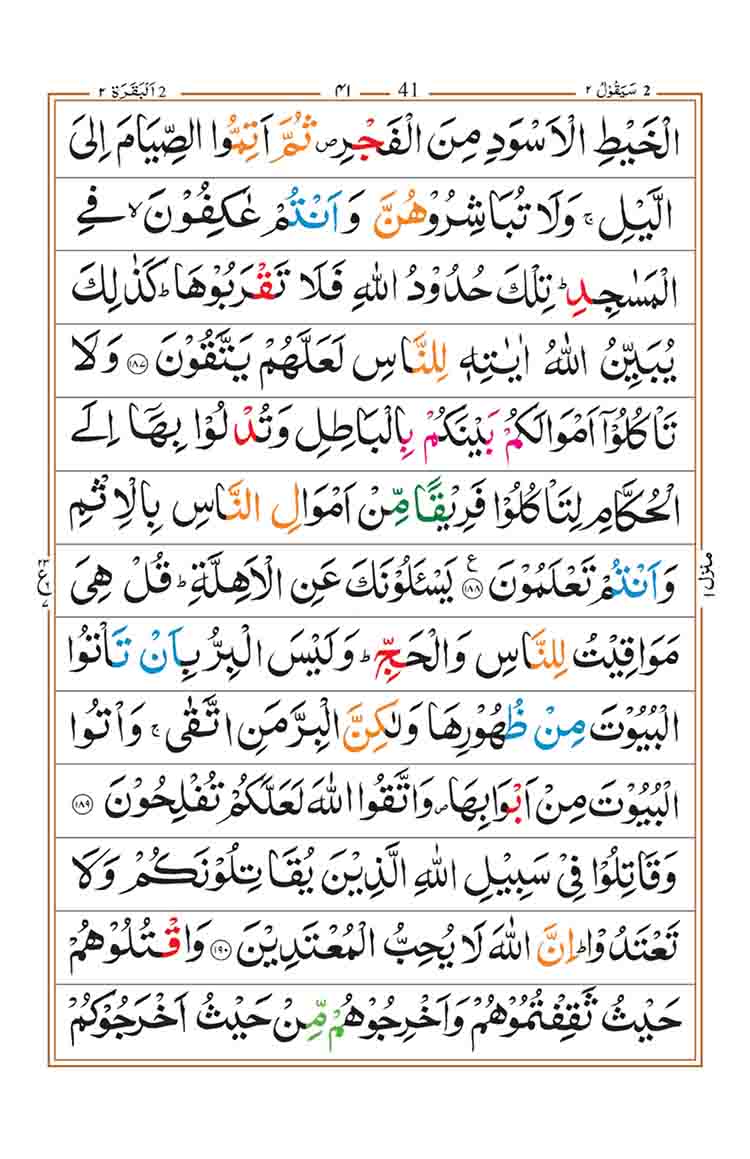 2 اَلْبَقَرَة ٢ ٤١ 41 2 سَيَقُوْلُ ٢
الْخَيْطِ الْاَسْوَدِ مِنَ الْفَجْرِ ص ثُمَّ اَتِمُّوا الصِّيَامَ اِلَى
الَّيْلِ ۚ وَلَا تُبَاشِرُوْهُنَّ وَاَنْتُمْ عٰكِفُوْنَ ۙ فِى
الْمَسٰجِدِ ؕ تِلْكَ حُدُوْدُ اللّٰهِ فَلَا تَقْرَبُوْهَا ؕ كَذٰلِكَ
يُبَيِّنُ اللّٰهُ اٰيٰتِهٖ لِلنَّاسِ لَعَلَّهُمْ يَتَّقُوْنَ ۝١٨٧ وَلَا
تَاْكُلُوْۤا اَمْوَالَكُمْ بَيْنَكُمْ بِالْبَاطِلِ وَتُدْلُوْا بِهَاۤ اِلَى
الْحُكَّامِ لِتَاْكُلُوْا فَرِيْقًا مِّنْ اَمْوَالِ النَّاسِ بِالْاِثْمِ
وَاَنْتُمْ تَعْلَمُوْنَ ۝١٨٨ ع يَسْـَٔلُوْنَكَ عَنِ الْاَهِلَّةِ ؕ قُلْ هِىَ
مَوَاقِيْتُ لِلنَّاسِ وَالْحَجِّ ؕ وَلَيْسَ الْبِرُّ بِاَنْ تَاْتُوا
الْبُيُوْتَ مِنْ ظُهُوْرِهَا وَلٰكِنَّ الْبِرَّ مَنِ اتَّقٰى ۚ وَاْتُوا
الْبُيُوْتَ مِنْ اَبْوَابِهَا ص وَاتَّقُوا اللّٰهَ لَعَلَّكُمْ تُفْلِحُوْنَ ۝١٨٩
وَقَاتِلُوْا فِىْ سَبِيْلِ اللّٰهِ الَّذِيْنَ يُقَاتِلُوْنَكُمْ وَلَا
تَعْتَدُوْا ؕ اِنَّ اللّٰهَ لَا يُحِبُّ الْمُعْتَدِيْنَ ۝١٩٠ وَاقْتُلُوْهُمْ
حَيْثُ ثَقِفْتُمُوْهُمْ وَاَخْرِجُوْهُمْ مِّنْ حَيْثُ اَخْرَجُوْكُمْ
منزل ١